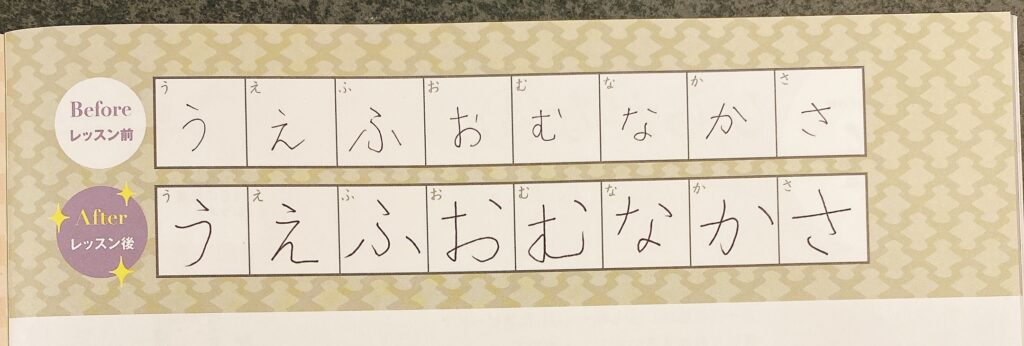 う え ふ お む な か さ
Before
レッスン前
う え ふ お む な か さ
う え ふ お む な か さ
After
レッスン後
う え ふ お む な か さ